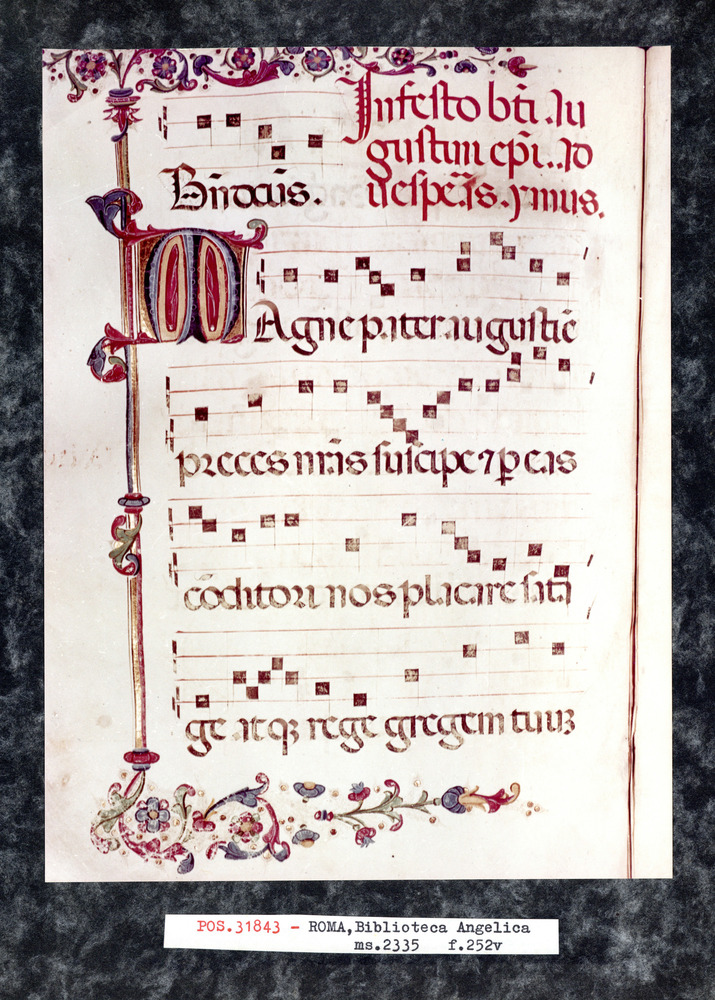 In festo bt̄i Au
gustini ep̄i. Ad
Bn̄dcām̄s. uesp̄e.is. ymus.
MAgne pater augustīe
preces nr̄as suscipe ⁊ ꝑ eas
cōditori nos placare sata
ge atqꝫ rege gregem tuuꝫ
POS.31843 - ROMA,Biblioteca Angelica
ms.2335 f.252v